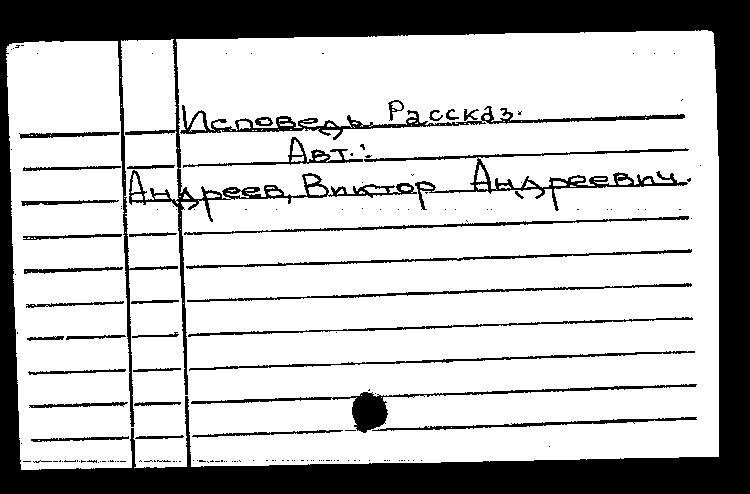 Исповедь. Рассказ.
Авт.:
Андреев, Виктор Андреевич.